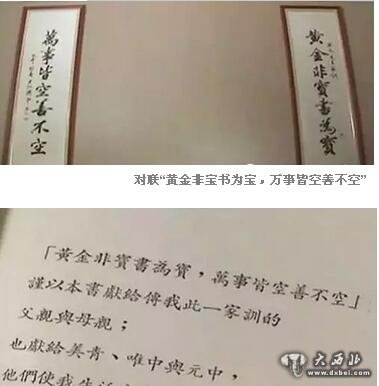 黃金非寶書為寶
萬事皆空善不空
对联“黄金非宝书为宝，万事皆空善不空”
「黃金非寶書為寶，萬事皆空善不空」
謹以本書獻給傳我此一家訓的
父親與母親；
也獻給美青、唯中與元中，
他們使我生活
大西北
www.dxbei.com